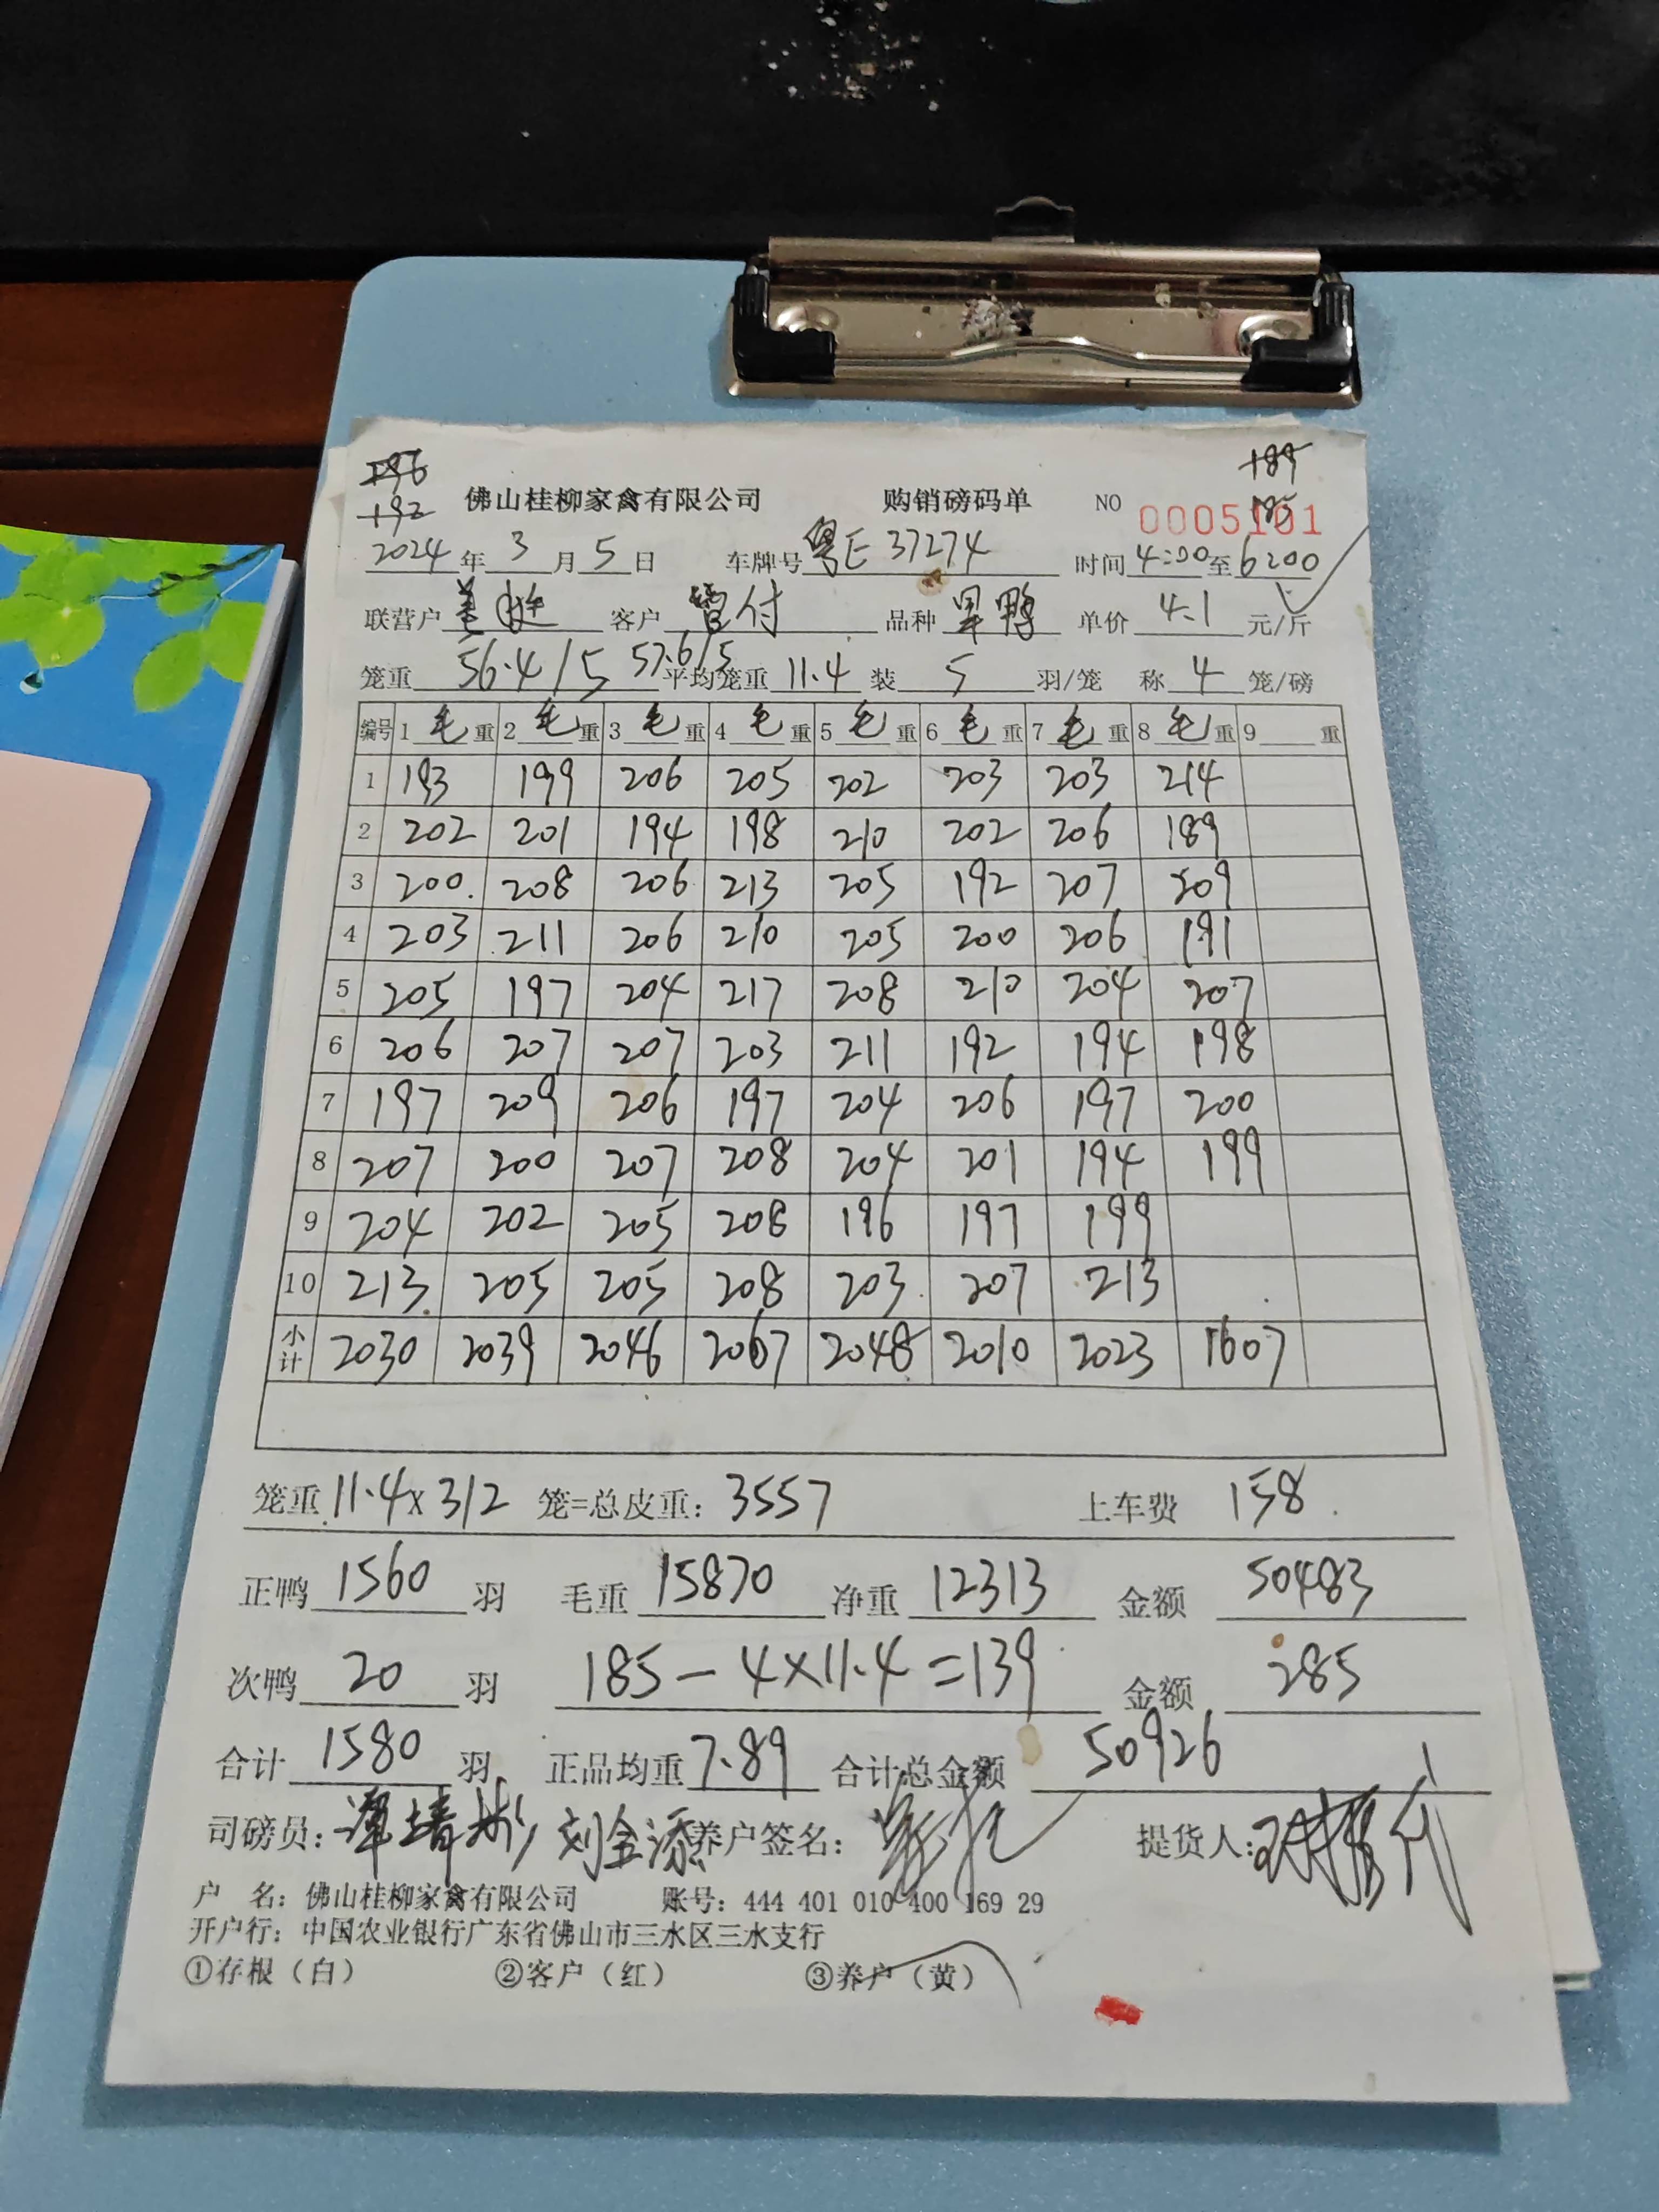 196 189
192 佛山桂柳家禽有限公司 购销磅码单 NO 0005101 185
2024年3月5日 车牌号粤E37274 时间4:00至6:00
联营户 客户 曾付 品种 单价4.1元/斤
笼重56.4/5 57.6/5 平均笼重11.4 装5羽/笼 称4笼/磅
编号 1毛重 2毛重 3毛重 4毛重 5毛重 6毛重 7毛重 8毛重 9重
1 193 199 206 205 202 203 203 214
2 202 201 194 198 210 202 206 189
3 200 208 206 213 205 192 207 209
4 203 211 206 210 205 200 206 191
5 205 197 204 217 208 210 204 207
6 206 207 207 203 211 192 194 198
7 197 209 206 197 204 206 197 200
8 207 200 207 208 204 201 194 199
9 204 202 205 208 196 197 199
10 213 205 205 208 203 207 213
小计 2030 2039 2046 2067 2048 2010 2023 1607
笼重11.4x312笼=总皮重:3557 上车费158
正鸭1560羽 毛重15870净重12313 金额50483
次鸭20羽 185-4×11.4=139 金额285
合计1580羽 正品均重7.89 合计总金额50926
司磅员: 刘金添 养户签名: 提货人:
户 名:佛山桂柳家禽有限公司 账号:444 401 010 400 169 29
开户行:中国农业银行广东省佛山市三水区三水支行
①存根(白) ②客户(红) ③养户(黄)